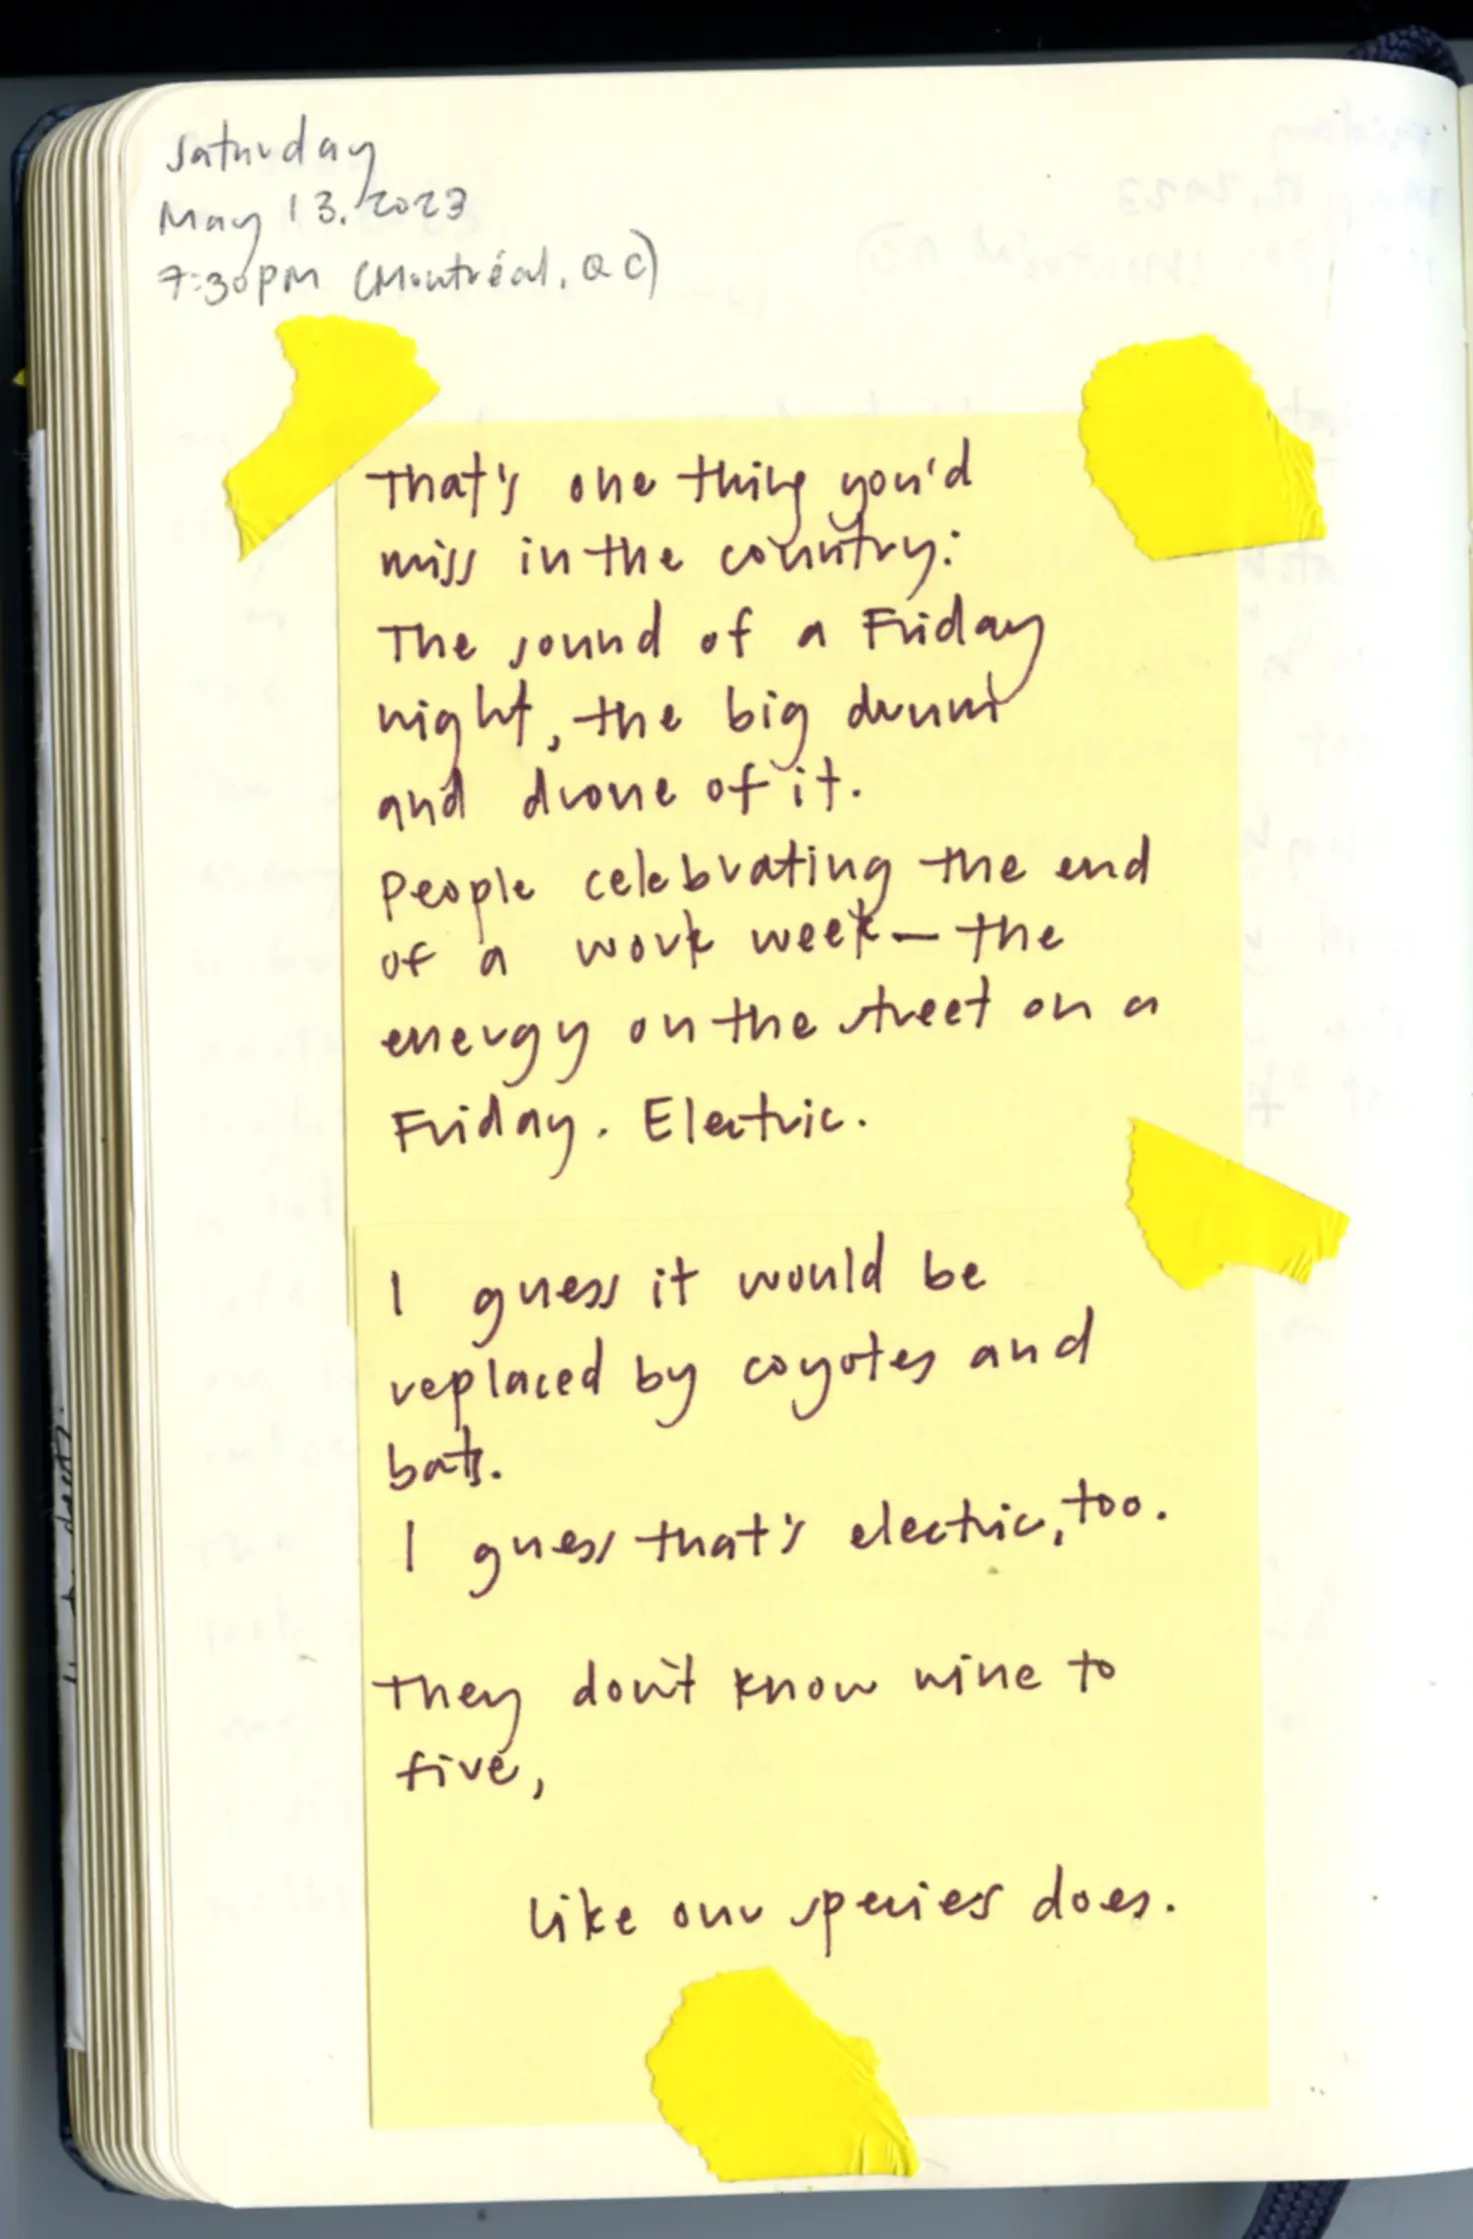 Saturday
May 13, 2023
7:30pm (Montréal, QC)
That's one thing you'd
miss in the country:
The sound of a Friday
night, the big drum
and drone of it.
People celebrating the end
of a work week — the
energy on the street on a
Friday. Electric.
I guess it would be
replaced by coyotes and
bats.
I guess that's electric, too.
They don't know nine to
five,
like our species does.